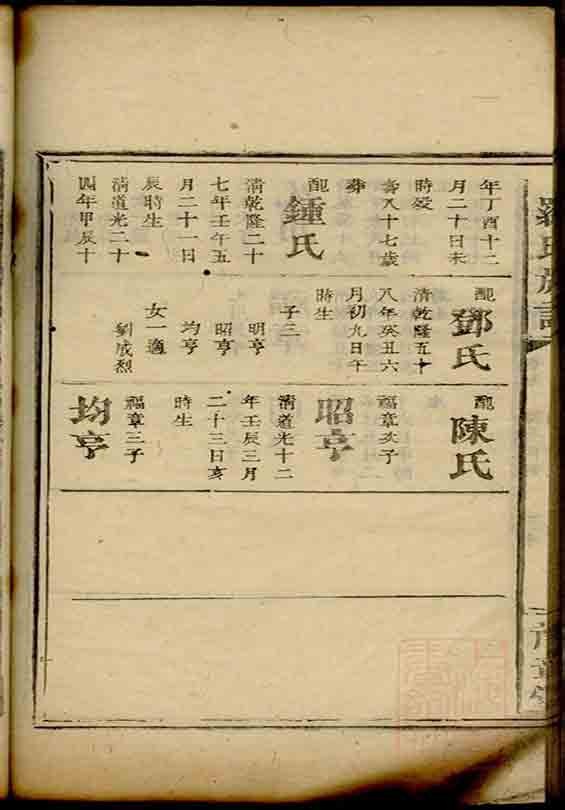 羅氏族譜
年丁酉十二
月二十日未
時歿
壽八十七歲
葬
配
鍾氏
清乾隆二十
七年壬午五
月二十一日
辰時生
清道光二十
四年甲辰十
配
鄧氏
清乾隆五十
八年癸丑六
月初九日午
時生
子三
明亨
昭亨
均亨
女一適
劉成烈
配
陳氏
福章次子
昭亨
清道光十二
年壬辰三月
二十三日亥
時生
福章三子
均亨